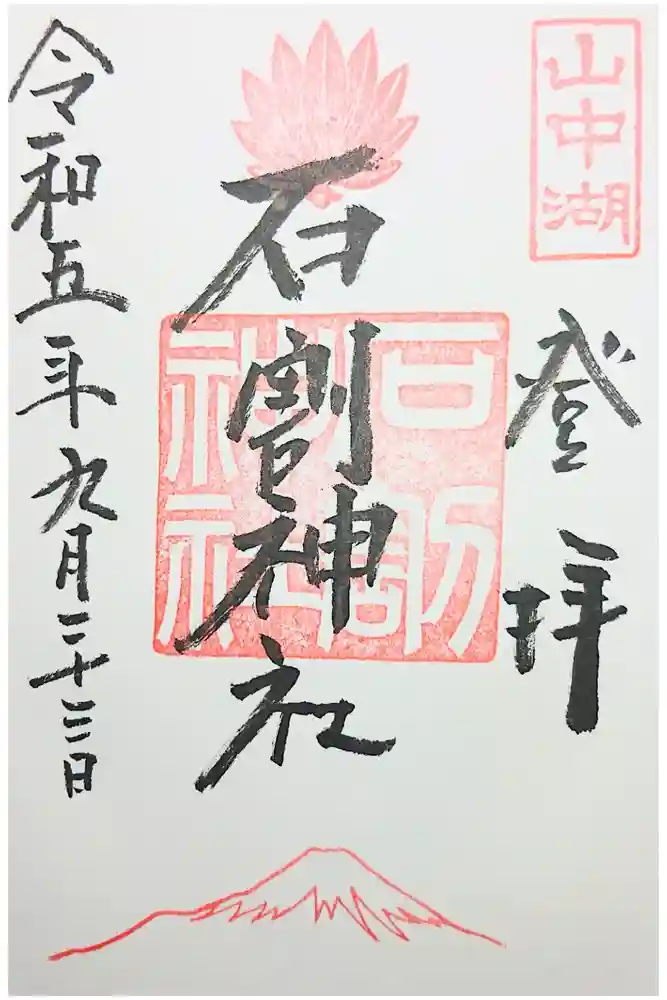 山中湖
登拝
石割神社
石割神社
令和五年九月二十三日